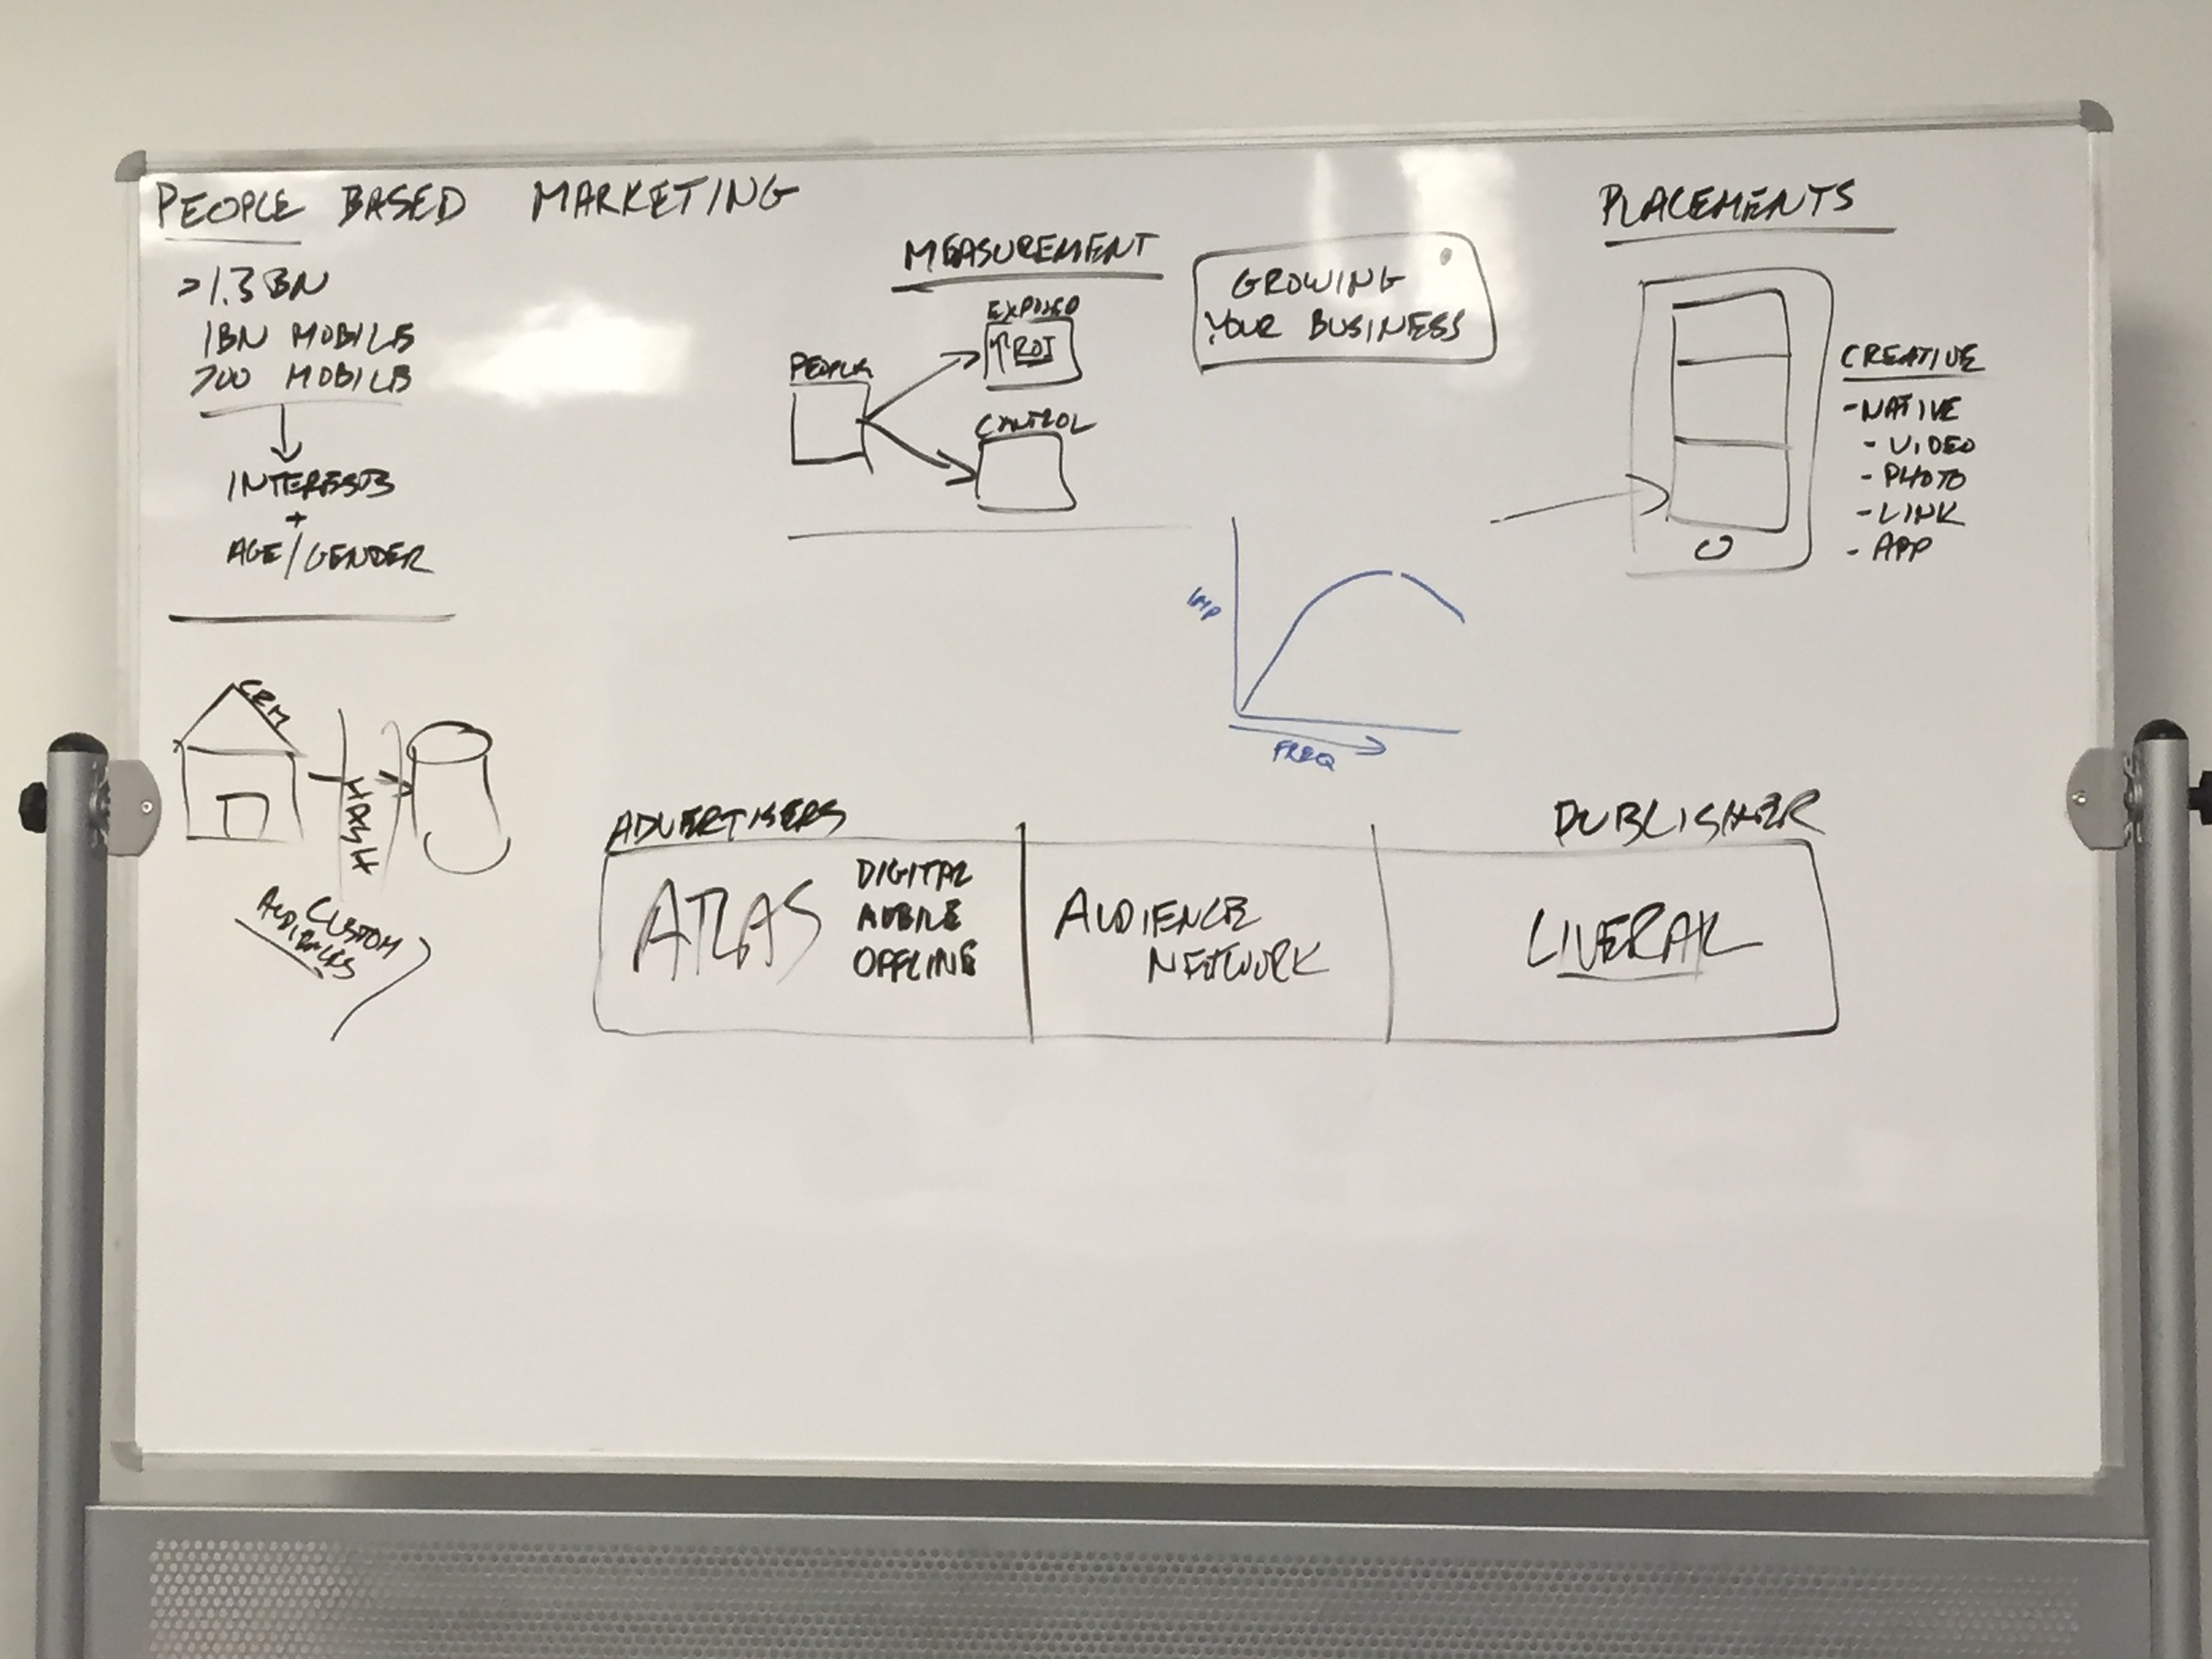 PEOPLE BASED MARKETING
>1.3 BN
1BN MOBILE
700 MOBILE
INTERESTS
+
AGE/GENDER
CRM
HASH
CUSTOM
AUDIENCES
MEASUREMENT
PEOPLE
EXPOSED
↑ROI
CONTROL
GROWING
YOUR BUSINESS
PLACEMENTS
CREATIVE
-NATIVE
- VIDEO
- PHOTO
- LINK
- APP
IMP
FREQ
ADVERTISERS
ATLAS
DIGITAL
MOBILE
OFFLINE
AUDIENCE
NETWORK
PUBLISHER
LIVERAIL